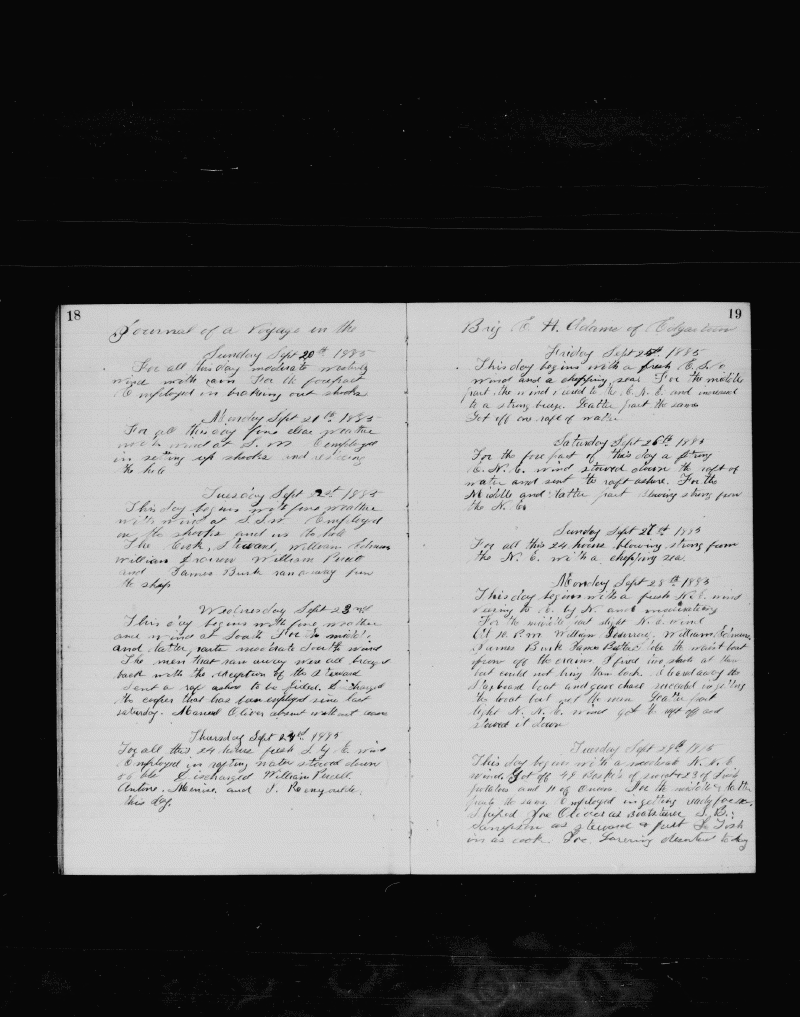 18
Journal of a Voyage in the
Sunday Sept 20th 1885
For all this day moderate westerly
wind with rain For the forepart
Employed in breaking out shooks
Monday Sept 21th 1885
For all this day fine clear weather
with wind at S. W Employed
in seting up shooks and
the hold
Tuesday Sept 22nd 1885
This day begins with fine weather
with wind at S.S.W. Employed
on the shooks and in the hold
The Cook, Steward, William
William William
and James Burk ran away from
the ship
Wednesday Sept 23rd
This day begins with fine weather
and wind at South For the middle
and latter parts moderate South wind
The men that ran away were all brought
back with the exception of the Steward
Sent a raft ashore to be filled. Discharged
the cooper that has been employed since last
saturday. Manuel Oliver absent without leave
Thursday Sept 24th 1885
For all this 24 hours fresh S. by E. wind
Employed in rafting water stowed down
bbls Discharged William
Antone. and J.
this day.
19
Brig E. H. Adams of Edgartown
Friday Sept 25th 1885
This day begins with a fresh
wind and a chopping sea For the middle
part the wind to the E.N.E. and increased
to a strong breeze. Latter part the same
Got off one raft of water
Saturday Sept 26th 1885
For the fore part of this day a strong
E. N. E. wind stowed down the raft of
water and sent the raft ashore. For the
Middle and latter part blowing strong from
the N. E.
Sunday Sept 27th 1885
For all this 24 hours blowing strong from
the N. E. with a chopping sea.
Monday Sept 28th 1885
This day begins with a fresh N.E. wind
to E. by N. and moderating
For the middle part light N. E. wind
At 10 P.m. William William
James Burk James took the waist boat
from off the cranes I fired shots at them
but could not bring them back. Cleared away the
Starboard boat and gave chase succeeded in getting
the boat but not the men Latter part
light N. N. E. wind got the raft off and
stowed it down
Tuesday Sept 29th 1885
This day begins with a moderate N. N. E
wind. Got off 49 of sweet & 23 of Irish
potatoes and 11 of Onions. For the middle & latter
parts the same Employed in getting ready for sea.
Shiped Joe Oliver as boatsteerer S. B.
Sampson as steward & put
in as cook Joe. deserted to day